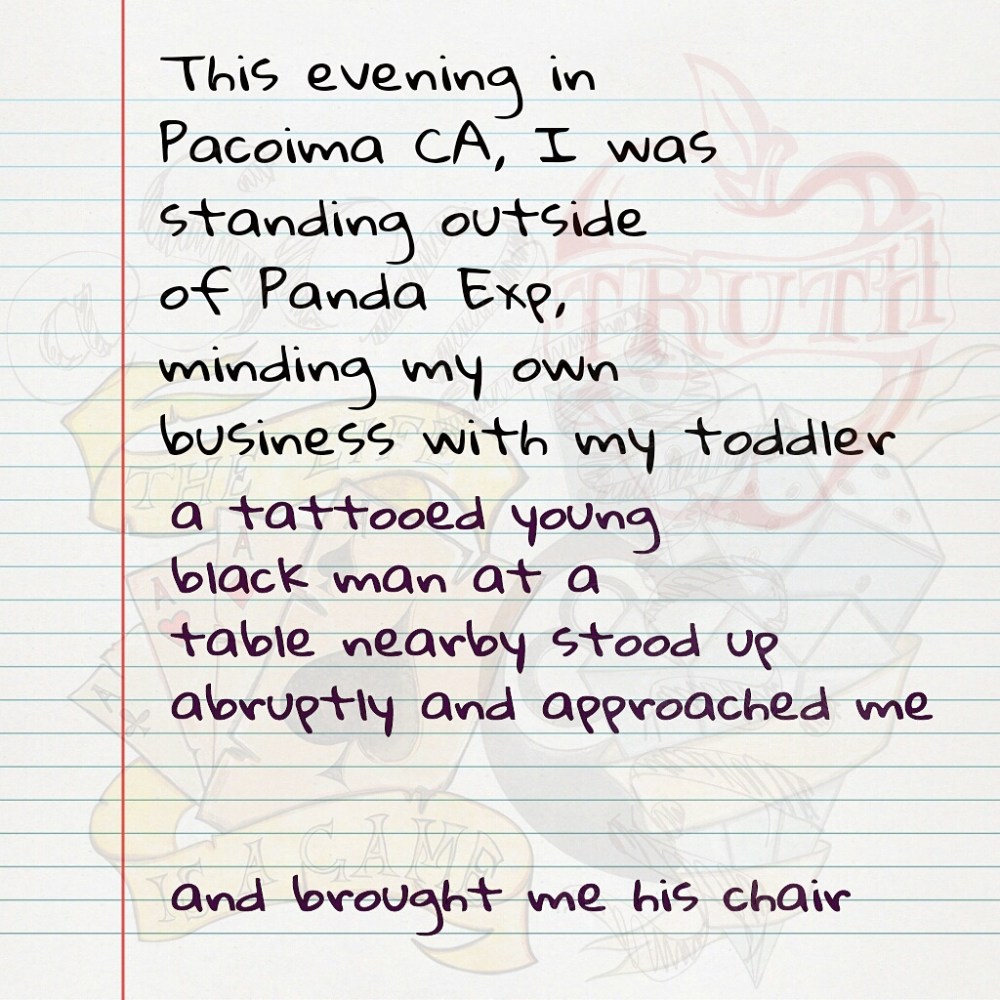 This evening in
Pacoima CA, I was
standing outside
of Panda Exp,
minding my own
business with my toddler
a tattooed young
black man at a
table nearby stood up
abruptly and approached me
and brought me his chair
TRUTH
THE LIFE
IS A GAME
A
A
A